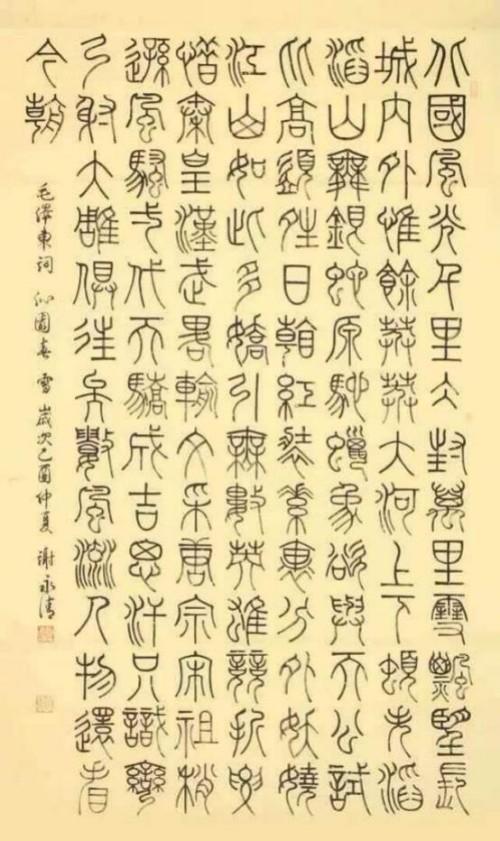 北國風光千里冰封萬里雪飄望長
城内外惟餘莽莽大河上下頓失滔
滔山舞銀蛇原馳蠟象欲與天公試
比高須晴日看紅裝素裹分外妖嬈
江山如此多嬌引無數英雄競折腰
惜秦皇漢武略輸文采唐宗宋祖稍
遜風騷弌代天驕成吉思汗只識彎
弓射大雕俱往矣數風流人物還看
今朝
毛澤東詞 沁園春 雪 歲次己酉仲夏 謝永清